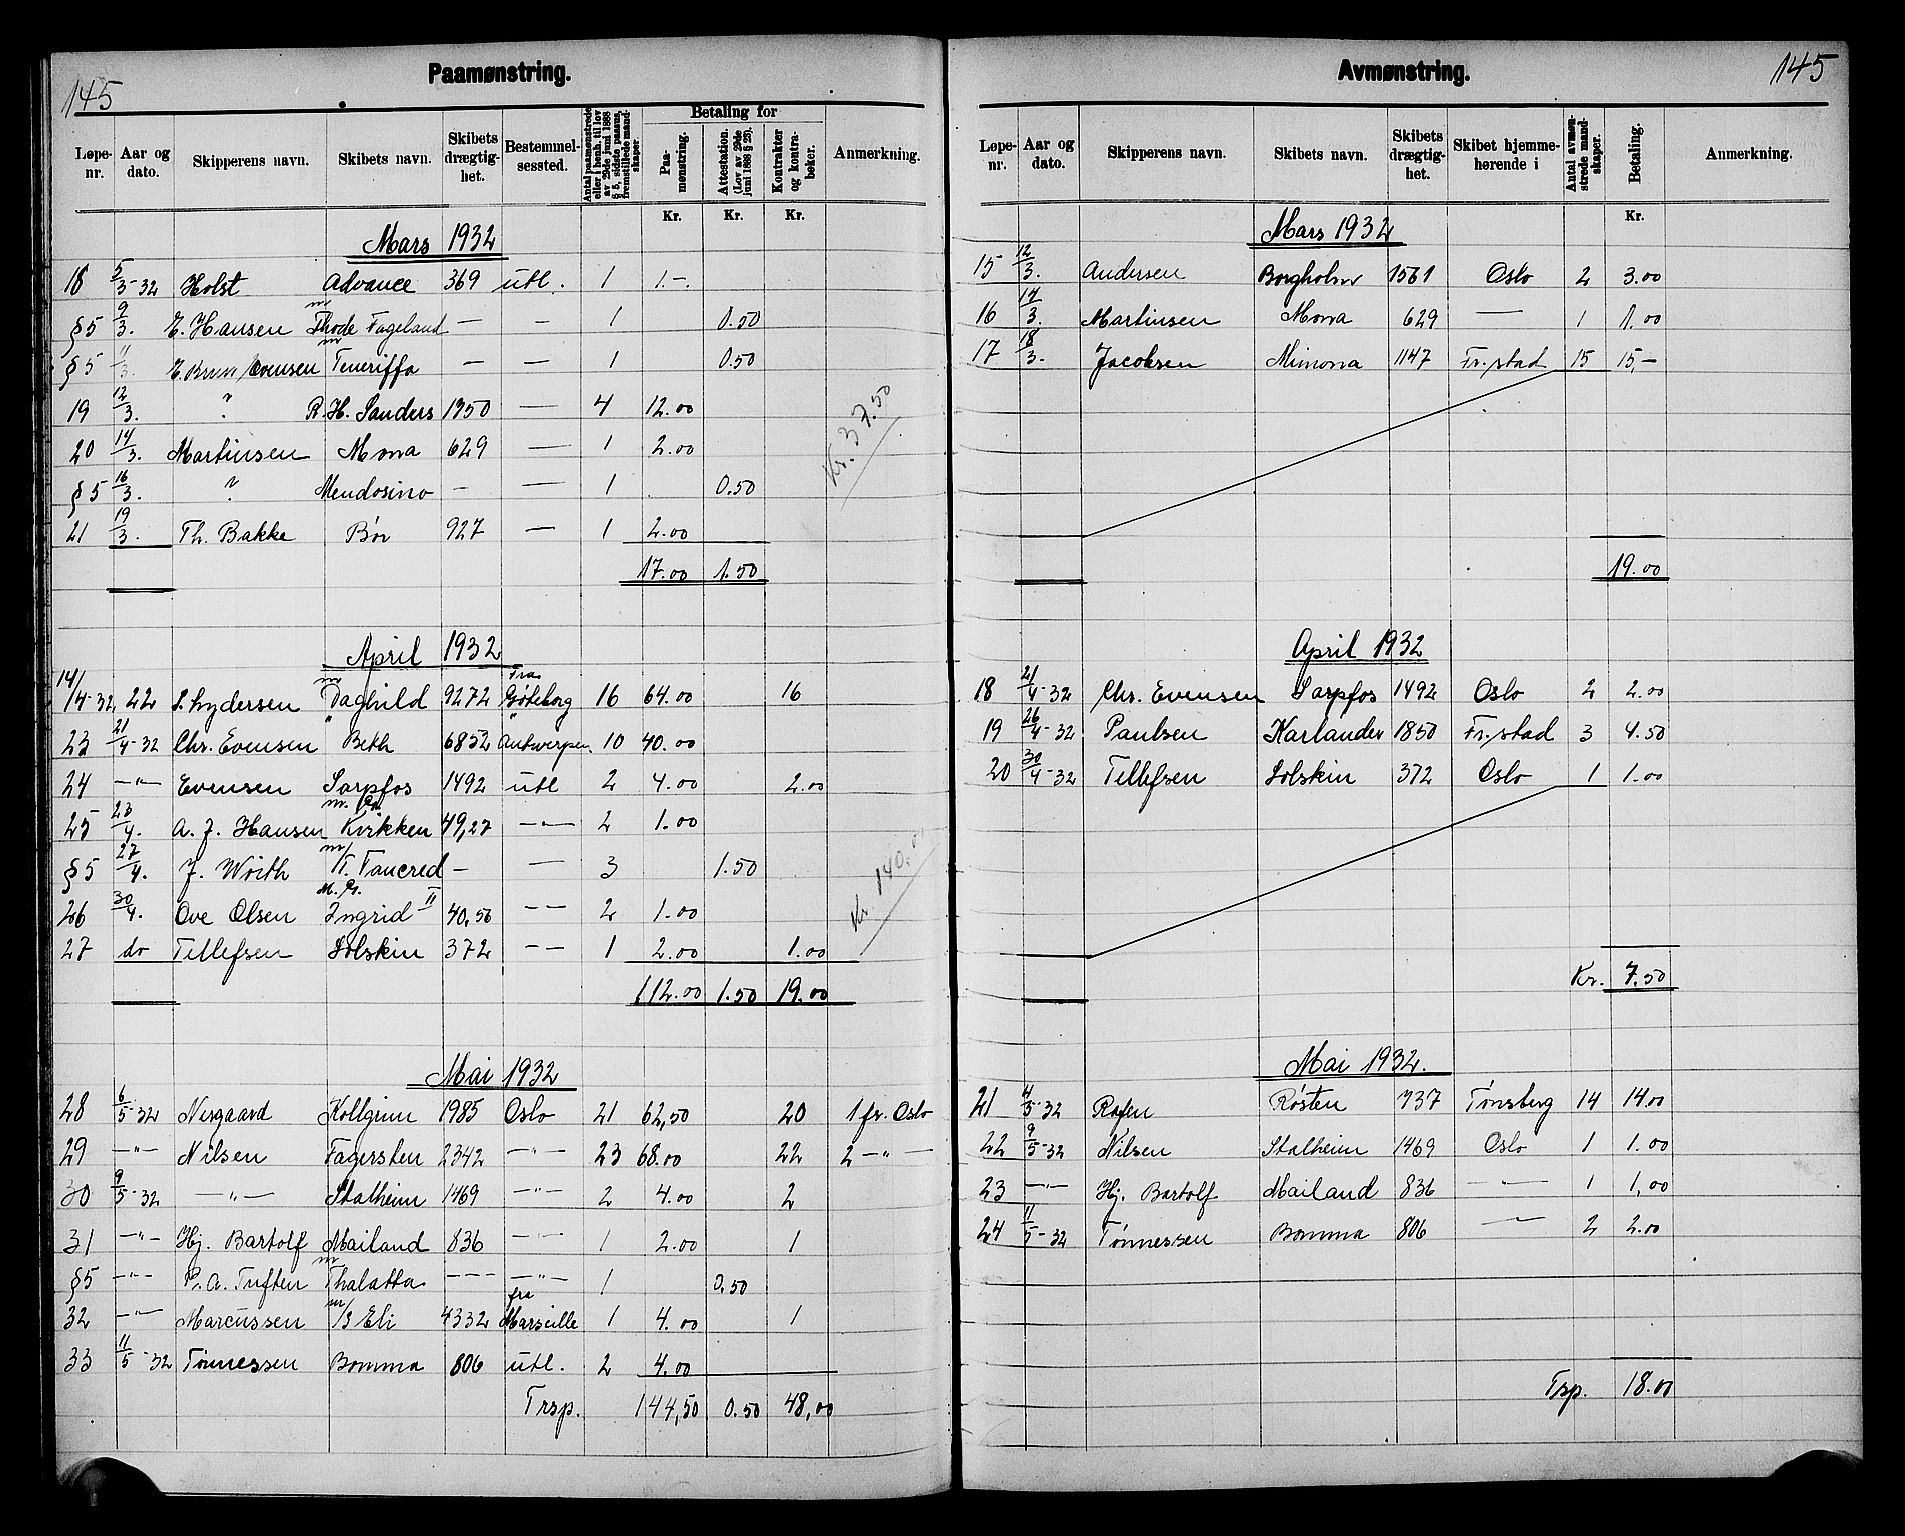 145
Paamønstring.
Løpe-nr. Aar og dato. Skipperens navn. Skibets navn. Skibets drægtig-het. Bestemmel-sessted. Antal paamønstrede eller i henh. til lov av 29de juni 1888 § 5, sidste passus, fremstillede mand-skaper. Betaling for Paa-mønstring. Attestation. (Lov av 29de juni 1888 § 23). Kontrakter og kontra-bøker. Anmerkning.
Kr. Kr. Kr.
Mars 1932
18 5/3-32 Holst Advance 369 utl. 1 1.-
§5 9/3. E. Hansen m/ Thode Fageland — — 1 0.50
§5 11/3. E. Evensen m/ Teneriffa — — 1 0.50
19 12/3. ? R. H. Sanders 1350 — 4 12.00
20 14/3. Martinsen Mona 629 — 1 2.00
§5 16/3. ? Mendosino - — 1 0.50
21 19/3. Th. Bakke Bør 927 — 1 2.00
17.00 1.50
Kr. 37.50
April 1932
14/4-32 22 S. Lydersen m/ Daghild 9272 Fra Göteborg 16 64.00 16
23 21/4-32 Chr. Evensen " Beth 6852 " Antwerpen 10 40.00
24 —"— Evensen Sarpfos 1492 utl 2 4.00 2.00
25 23/4. A. J. Hansen Kirkken 49,27 —"— 2 1.00
§5 27/4. J. Wöith m/T. Tancred - — 3 1.50
26 30/4. Ove Olsen Ingrid II 40.56 — — 2 1.00
27 do Tellefsen Solskin 372 — — 1 2.00 1.00
112.00 1.50 19.00
Kr. 140.
Mai 1932
28 6/5-32 Nergaard Kollgrim 1985 Oslo 21 62,50 20 1 fr. Oslo
29 —"— Nilsen Fagersten 2342 —"— 23 68.00 22 2 —"—
30 9/5-32 —"— Stalheim 1469 —"— 2 4.00 2
31 —"— Hj. Bartolf Mailand 836 —"— 1 2.00 1
§5 —"— P. A. Tuften m/ Thalatta --- —"— 1 0.50
32 —"— Marcussen m/S Eli 4332 fra Marseille 1 4.00 1
33 11/5-32 Tønnessen Bomma 806 utl. 2 4.00
Trsp. 144,50 0.50 48,00
Avmønstring.
145
Løpe-nr. Aar og dato. Skipperens navn. Skibets navn. Skibets drægtig-het. Skibet hjemme-hørende i Antal avmøn-strede mand-skaper. Betaling. Anmerkning.
Kr.
Mars 1932
15 12/3. Andersen Borgholm 1561 Oslo 2 3.00
16 14/3. Martinsen Mona 629 — 1 1.00
17 18/3. Jacobsen Mimona 1147 Fr.stad 15 15,-
19.00
April 1932
18 21/4-32 Chr. Evensen Sarpfos 1492 Oslo 2 2.00
19 26/4-32 Paulsen Karlander 1850 Fr.stad 3 4.50
20 30/4-32 Tellefsen Solskin 372 Oslo 1 1.00
Kr. 7.50
Mai 1932.
21 4/5-32 Røsten 737 Tønsberg 14 14.00
22 9/5-32 Nilsen Stalheim 1469 Oslo 1 1.00
23 —"— Hj. Bartolf Mailand 836 —"— 1 1,00
24 11/5-32 Tønnessen Bomma 806 —"— 2 2.00
Trsp. 18.00